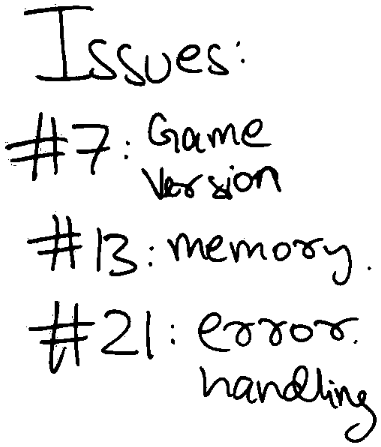 Issues:
#7: Game
Version
#13: memory.
#21: error.
handling